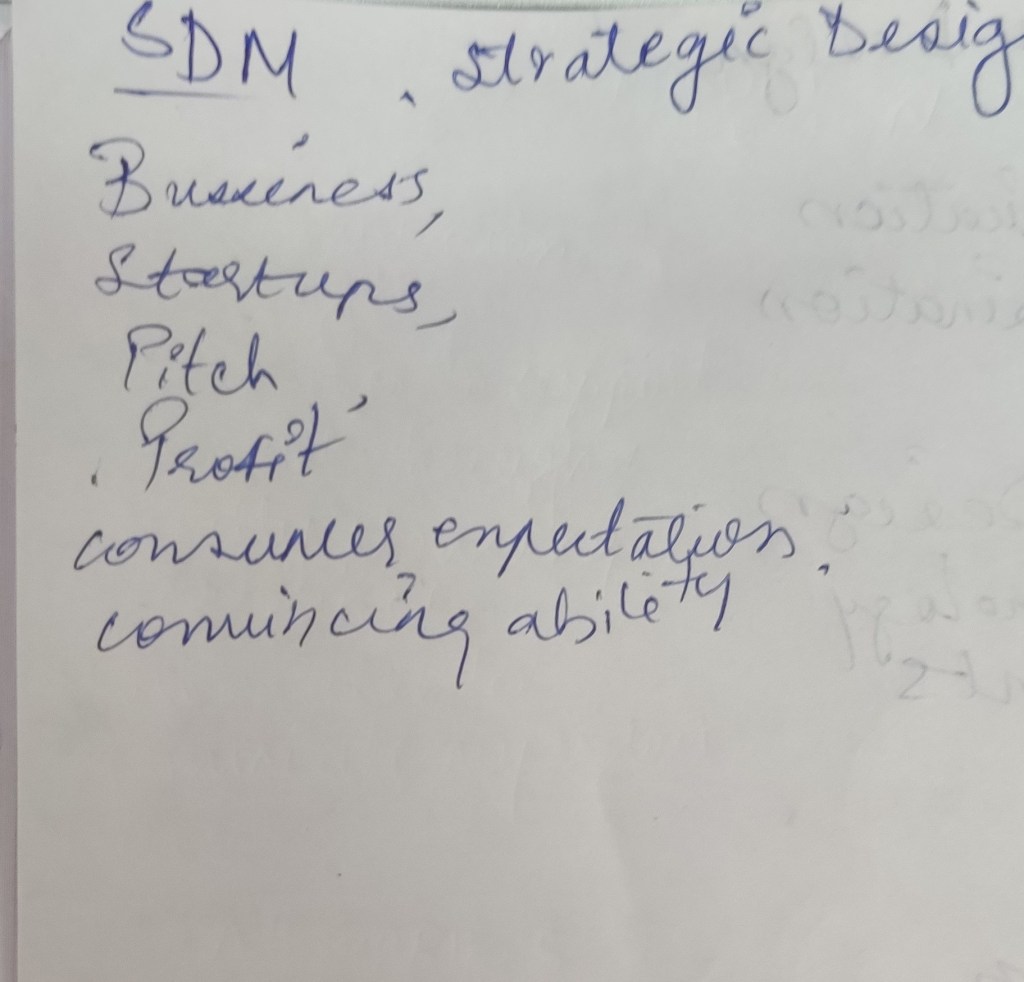 SDM . Strategic Desig
Business,
Startups,
Pitch,
. Profit
consumer expectation.
convincing ability